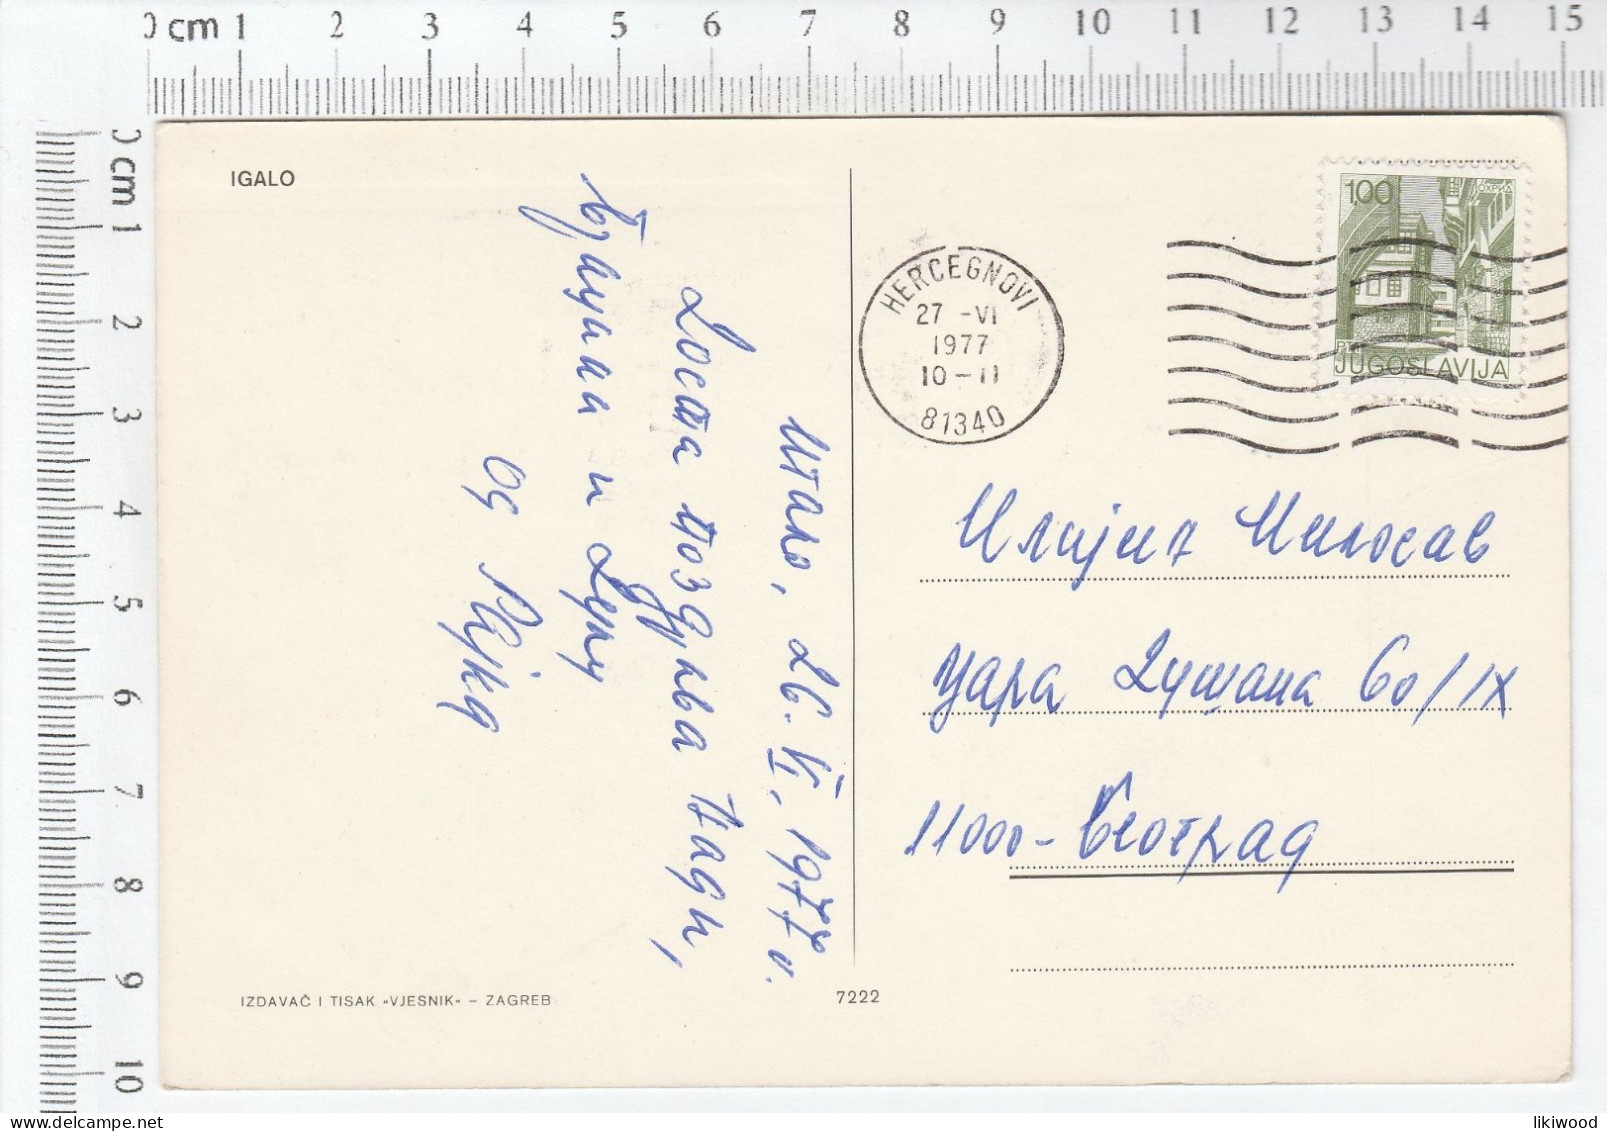 0 cm 1 2 3 4 5 6 7 8 9 10 11 12 13 14 15
0 cm 1 2 3 4 5 6 7 8 9 10
IGALO
Игало, 26. VI, 1977 г.
Доста поздрава Нади,
и
од
100
ОХРИД
PTT
JUGOSLAVIJA
HERCEGNOVI
27 -VI
1977
10-11
81340
Илијић Милосав
Цара Душана 60/IX
11000-Београд
IZDAVAČ I TISAK »VJESNIK« – ZAGREB
7222
likiwood